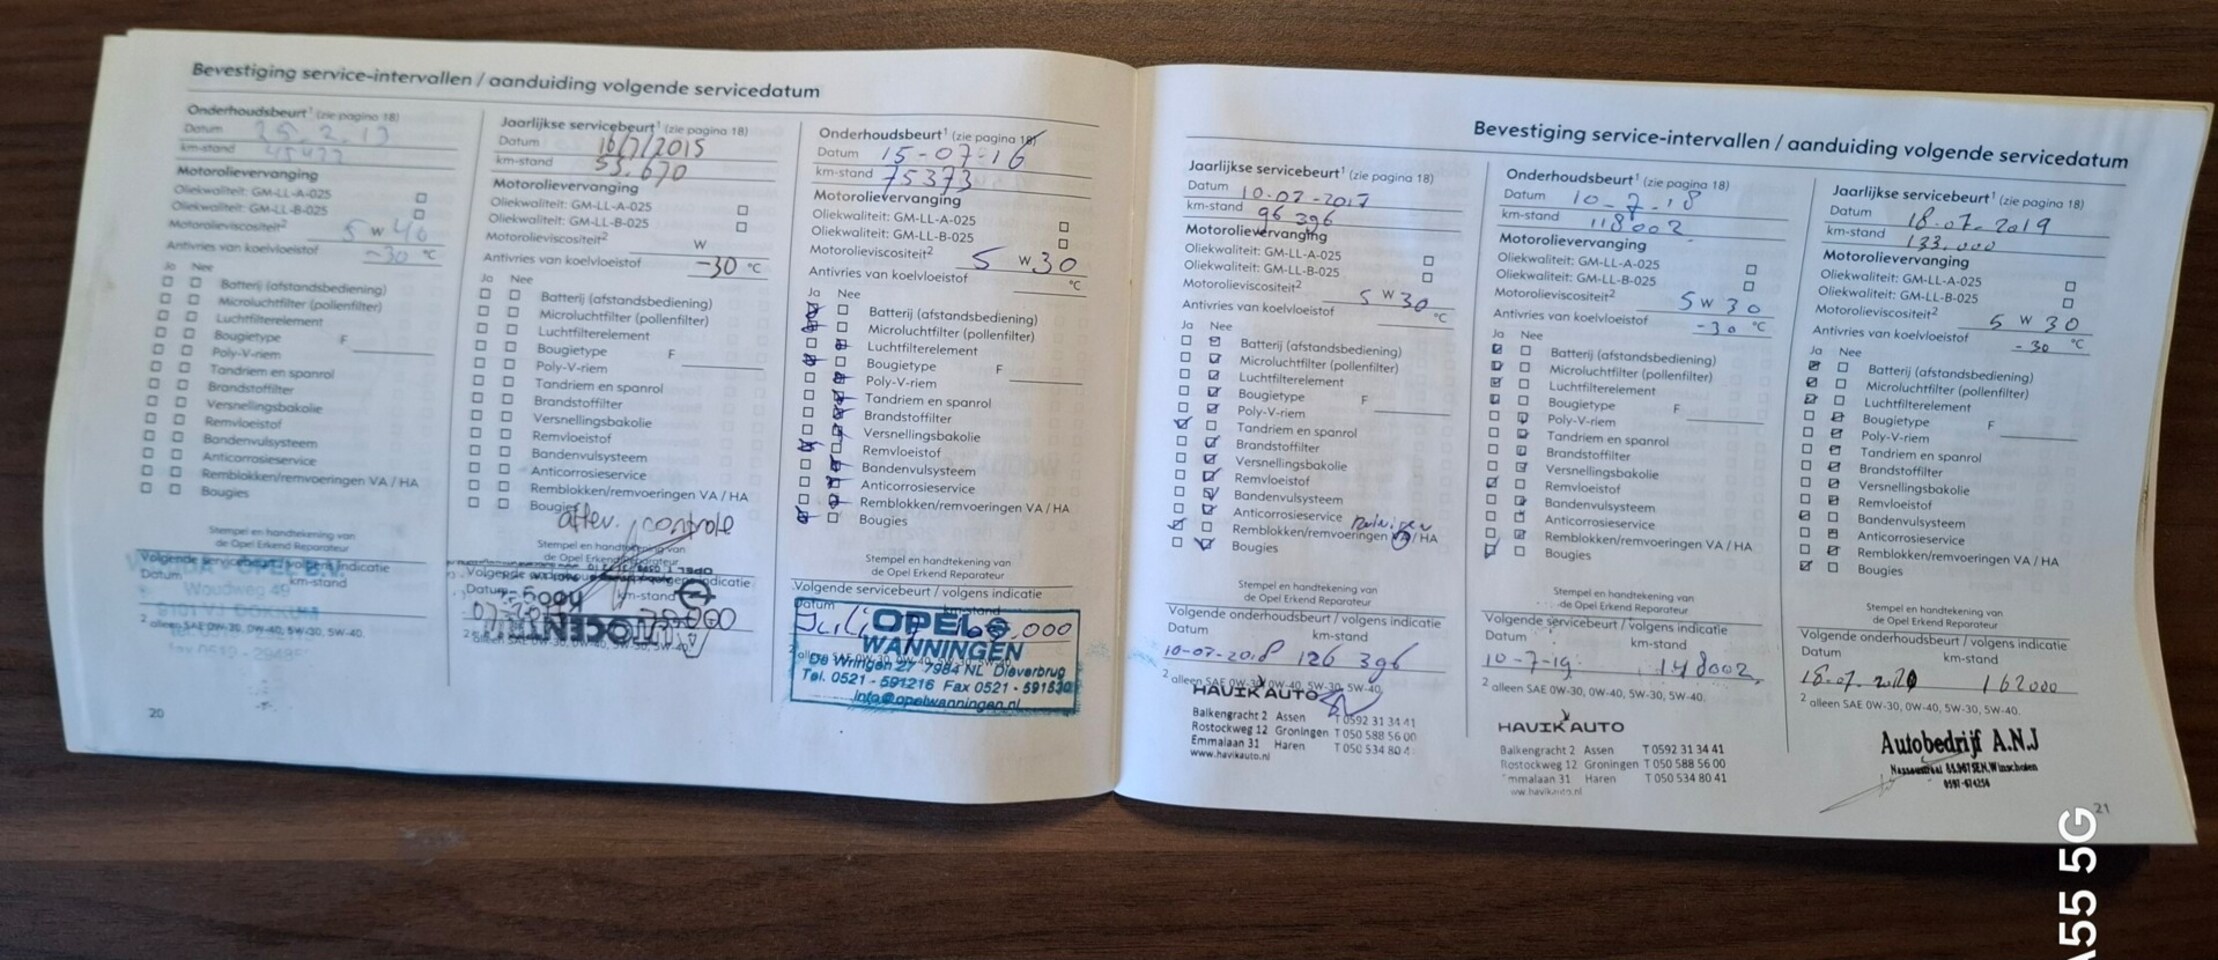 Bevestiging service-intervallen / aanduiding volgende servicedatum
Onderhoudsbeurt¹ (zie pagina 18)
Datum 25.2.13
km-stand
Motorolievervanging
Oliekwaliteit: GM-LL-A-025
Oliekwaliteit: GM-LL-B-025
Motorolieviscositeit² 5 W 40
Antivries van koelvloeistof -30 °C
Ja Nee
Batterij (afstandsbediening)
Microluchtfilter (pollenfilter)
Luchtfilterelement
Bougietype F
Poly-V-riem
Tandriem en spanrol
Brandstoffilter
Versnellingsbakolie
Remvloeistof
Bandenvulsysteem
Anticorrosieservice
Remblokken/remvoeringen VA / HA
Bougies
Stempel en handtekening van
de Opel Erkend Reparateur
Volgende servicebeurt / volgens indicatie
Datum km-stand
OPEL B.V.
Woudweg 49
9101 VJ DOKKUM
² alleen SAE 0W-30, 0W-40, 5W-30, 5W-40.
20
Jaarlijkse servicebeurt¹ (zie pagina 18)
Datum 16/7/2015
km-stand 55.670
Motorolievervanging
Oliekwaliteit: GM-LL-A-025
Oliekwaliteit: GM-LL-B-025
Motorolieviscositeit² W
Antivries van koelvloeistof -30 °C
Ja Nee
Batterij (afstandsbediening)
Microluchtfilter (pollenfilter)
Luchtfilterelement
Bougietype F
Poly-V-riem
Tandriem en spanrol
Brandstoffilter
Versnellingsbakolie
Remvloeistof
Bandenvulsysteem
Anticorrosieservice
Remblokken/remvoeringen VA / HA
Bougies
aflev. controle
Stempel en handtekening van
de Opel Erkend Reparateur
indicatie
Datum km-stand
² alleen SAE 0W-30, 0W-40, 5W-30, 5W-40.
Onderhoudsbeurt¹ (zie pagina 18)
Datum 15-07-16
km-stand 75373
Motorolievervanging
Oliekwaliteit: GM-LL-A-025
Oliekwaliteit: GM-LL-B-025
Motorolieviscositeit² 5 W 30
Antivries van koelvloeistof °C
Ja Nee
Batterij (afstandsbediening)
Microluchtfilter (pollenfilter)
Luchtfilterelement
Bougietype F
Poly-V-riem
Tandriem en spanrol
Brandstoffilter
Versnellingsbakolie
Remvloeistof
Bandenvulsysteem
Anticorrosieservice
Remblokken/remvoeringen VA / HA
Bougies
Stempel en handtekening van
de Opel Erkend Reparateur
Volgende servicebeurt / volgens indicatie
Datum km-stand
Juli
OPEL
WANNINGEN
De Wringen 27 7984 NL Dieverbrug
Tel. 0521 - 591216 Fax 0521 - 591530
info@opelwanningen.nl
Bevestiging service-intervallen / aanduiding volgende servicedatum
Jaarlijkse servicebeurt¹ (zie pagina 18)
Datum 10-07-2017
km-stand 96 396
Motorolievervanging
Oliekwaliteit: GM-LL-A-025
Oliekwaliteit: GM-LL-B-025
Motorolieviscositeit² 5 W 30
Antivries van koelvloeistof °C
Ja Nee
Batterij (afstandsbediening)
Microluchtfilter (pollenfilter)
Luchtfilterelement
Bougietype F
Poly-V-riem
Tandriem en spanrol
Brandstoffilter
Versnellingsbakolie
Remvloeistof
Bandenvulsysteem
Anticorrosieservice reinigen
Remblokken/remvoeringen VA / HA
Bougies
Stempel en handtekening van
de Opel Erkend Reparateur
Volgende onderhoudsbeurt / volgens indicatie
Datum km-stand
10-07-2018 126 396
² alleen SAE 0W-30, 0W-40, 5W-30, 5W-40.
HAVIK AUTO
Balkengracht 2 Assen T 0592 31 34 41
Rostockweg 12 Groningen T 050 588 56 00
Emmalaan 31 Haren T 050 534 80 4
www.havikauto.nl
Onderhoudsbeurt¹ (zie pagina 18)
Datum 10-7-18
km-stand 118002
Motorolievervanging
Oliekwaliteit: GM-LL-A-025
Oliekwaliteit: GM-LL-B-025
Motorolieviscositeit² 5 W 30
Antivries van koelvloeistof -30 °C
Ja Nee
Batterij (afstandsbediening)
Microluchtfilter (pollenfilter)
Luchtfilterelement
Bougietype F
Poly-V-riem
Tandriem en spanrol
Brandstoffilter
Versnellingsbakolie
Remvloeistof
Bandenvulsysteem
Anticorrosieservice
Remblokken/remvoeringen VA / HA
Bougies
Stempel en handtekening van
de Opel Erkend Reparateur
Volgende servicebeurt / volgens indicatie
Datum km-stand
10-7-19. 148002
² alleen SAE 0W-30, 0W-40, 5W-30, 5W-40.
HAVIK AUTO
Balkengracht 2 Assen T 0592 31 34 41
Rostockweg 12 Groningen T 050 588 56 00
mmalaan 31 Haren T 050 534 80 41
ww.havikauto.nl
Jaarlijkse servicebeurt¹ (zie pagina 18)
Datum 18.07.2019
km-stand 133.000
Motorolievervanging
Oliekwaliteit: GM-LL-A-025
Oliekwaliteit: GM-LL-B-025
Motorolieviscositeit² 5 W 30
Antivries van koelvloeistof -30 °C
Ja Nee
Batterij (afstandsbediening)
Microluchtfilter (pollenfilter)
Luchtfilterelement
Bougietype F
Poly-V-riem
Tandriem en spanrol
Brandstoffilter
Versnellingsbakolie
Remvloeistof
Bandenvulsysteem
Anticorrosieservice
Remblokken/remvoeringen VA / HA
Bougies
Stempel en handtekening van
de Opel Erkend Reparateur
Volgende onderhoudsbeurt / volgens indicatie
Datum km-stand
18.07.2020 162000
² alleen SAE 0W-30, 0W-40, 5W-30, 5W-40.
Autobedrijf A.N.J
Winschoten
21
A55 5G